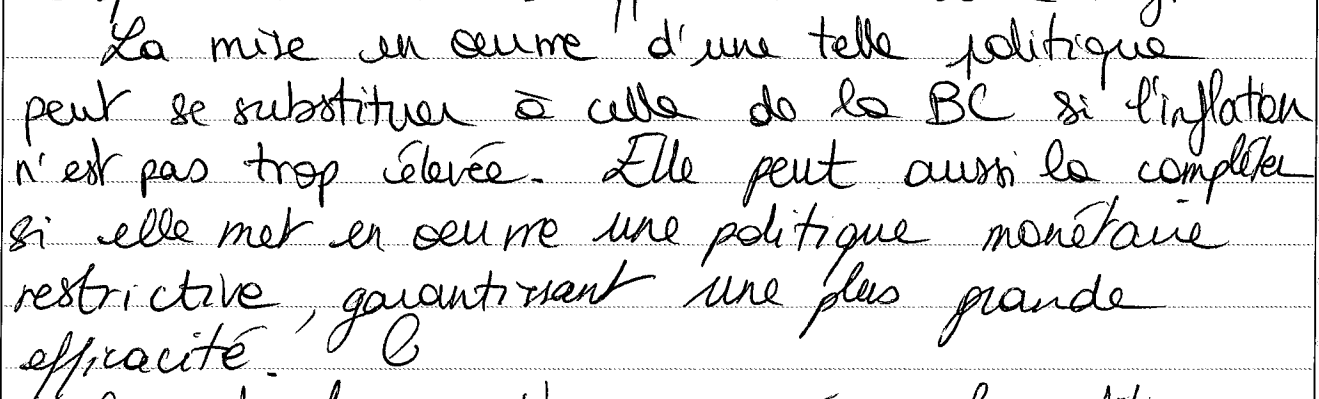 La mise en œuvre d'une telle politique
peut se substituer à celle de la BC si l'inflation
n'est pas trop élevée. Elle peut aussi la compléter
si elle met en oeuvre une politique monétaire
restrictive, garantissant une plus grande
efficacité.